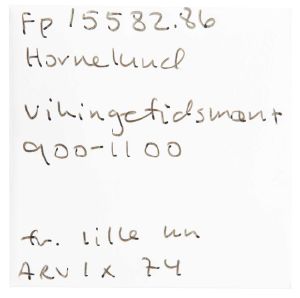 Fp 15582.86
Hornelund
Vikingetidsmønt
900-1100
fr. lille
ARV IX 74